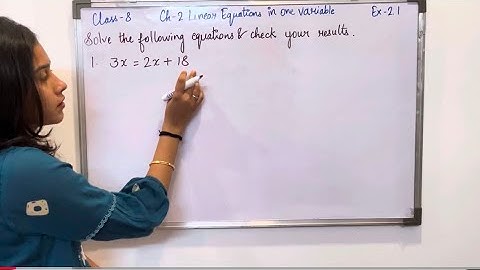 Class-8 Ch-2 Linear Equations in one variable Ex-2.1
Solve the following equations & check your results.
1. 3x = 2x + 18